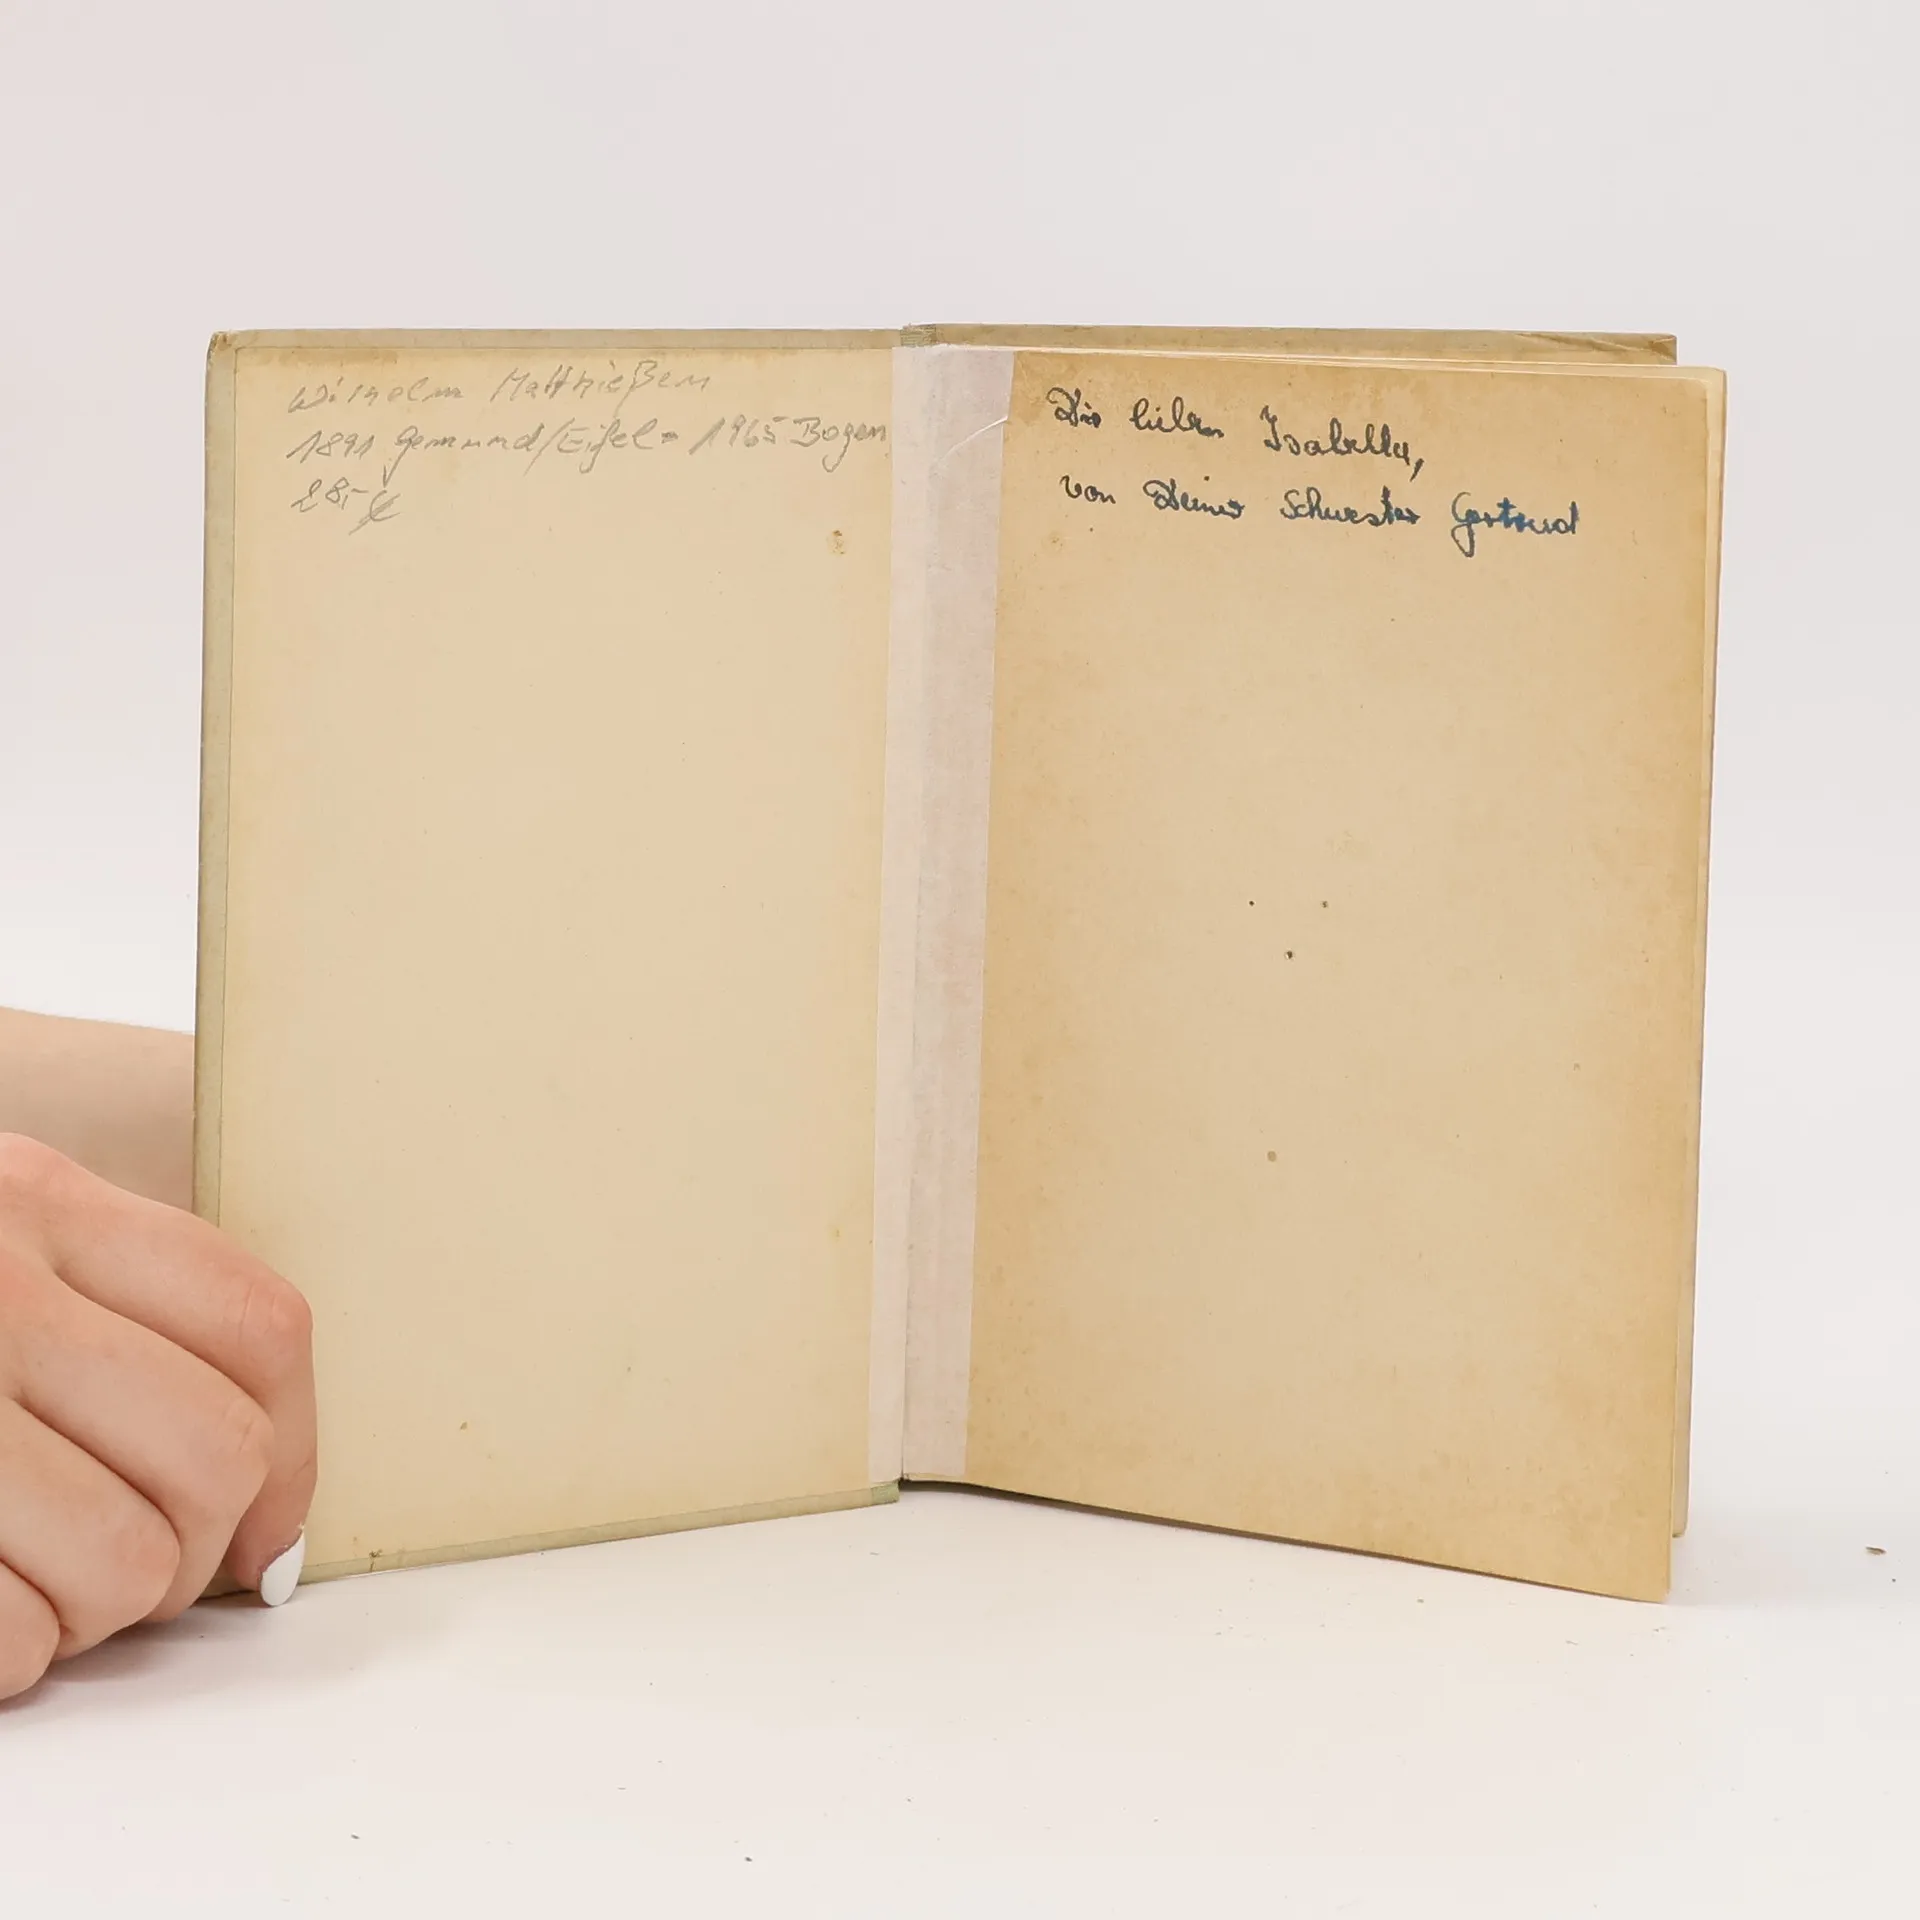 Wilhelm Matthießen
1891 Gemünd/Eifel - 1965 Bogen
28,- €
Dir lieben Isabella,
von Deiner Schwester Gertrud